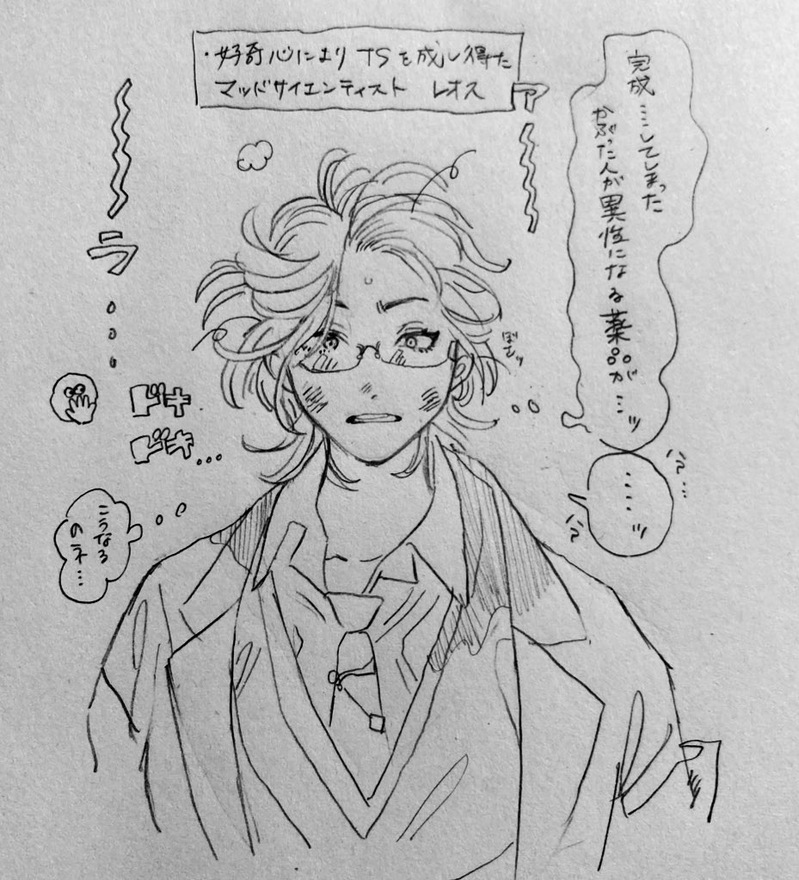 ・好奇心によりTSを成し得た
マッドサイエンティスト レオス
完成……してしまった
かぶった人が異性になる薬品が…ッ
……ッ
ハァ…
ハァ
ア〜
〜ラ…
ドキ
ドキ…
こうなる
のネ…